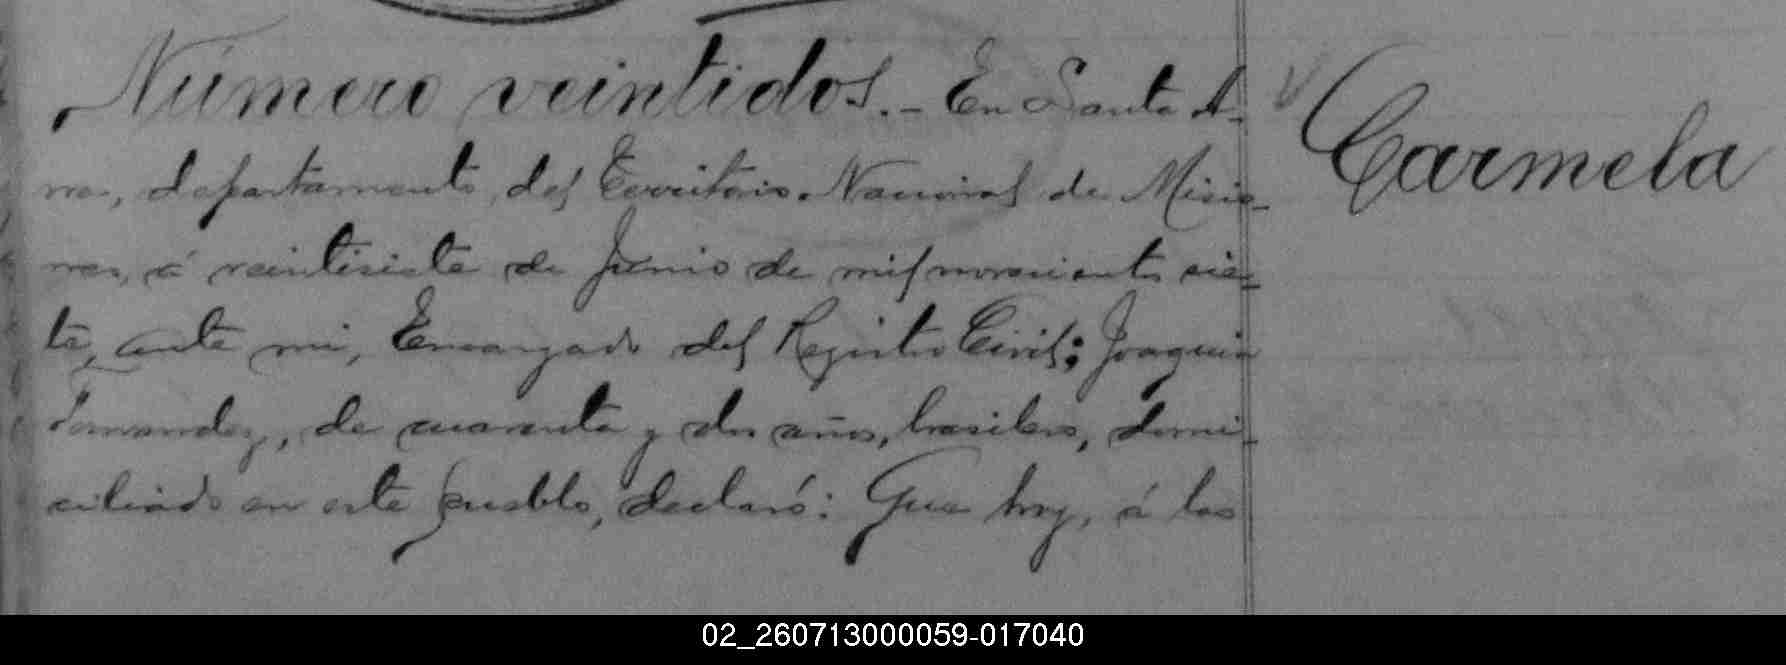 Número veintidos.- En Santa A-
na, departamento del Territorio Nacional de Misio-
nes, á veintisiete de Junio de mil novecientos sie-
te, ante mi, Encargado del Registro Civil; Joaquin
Fernandez, de cuarenta y dos años, brasilero, domi-
ciliado en este pueblo, declaró: Que hoy, á las
Carmela
02_260713000059-017040